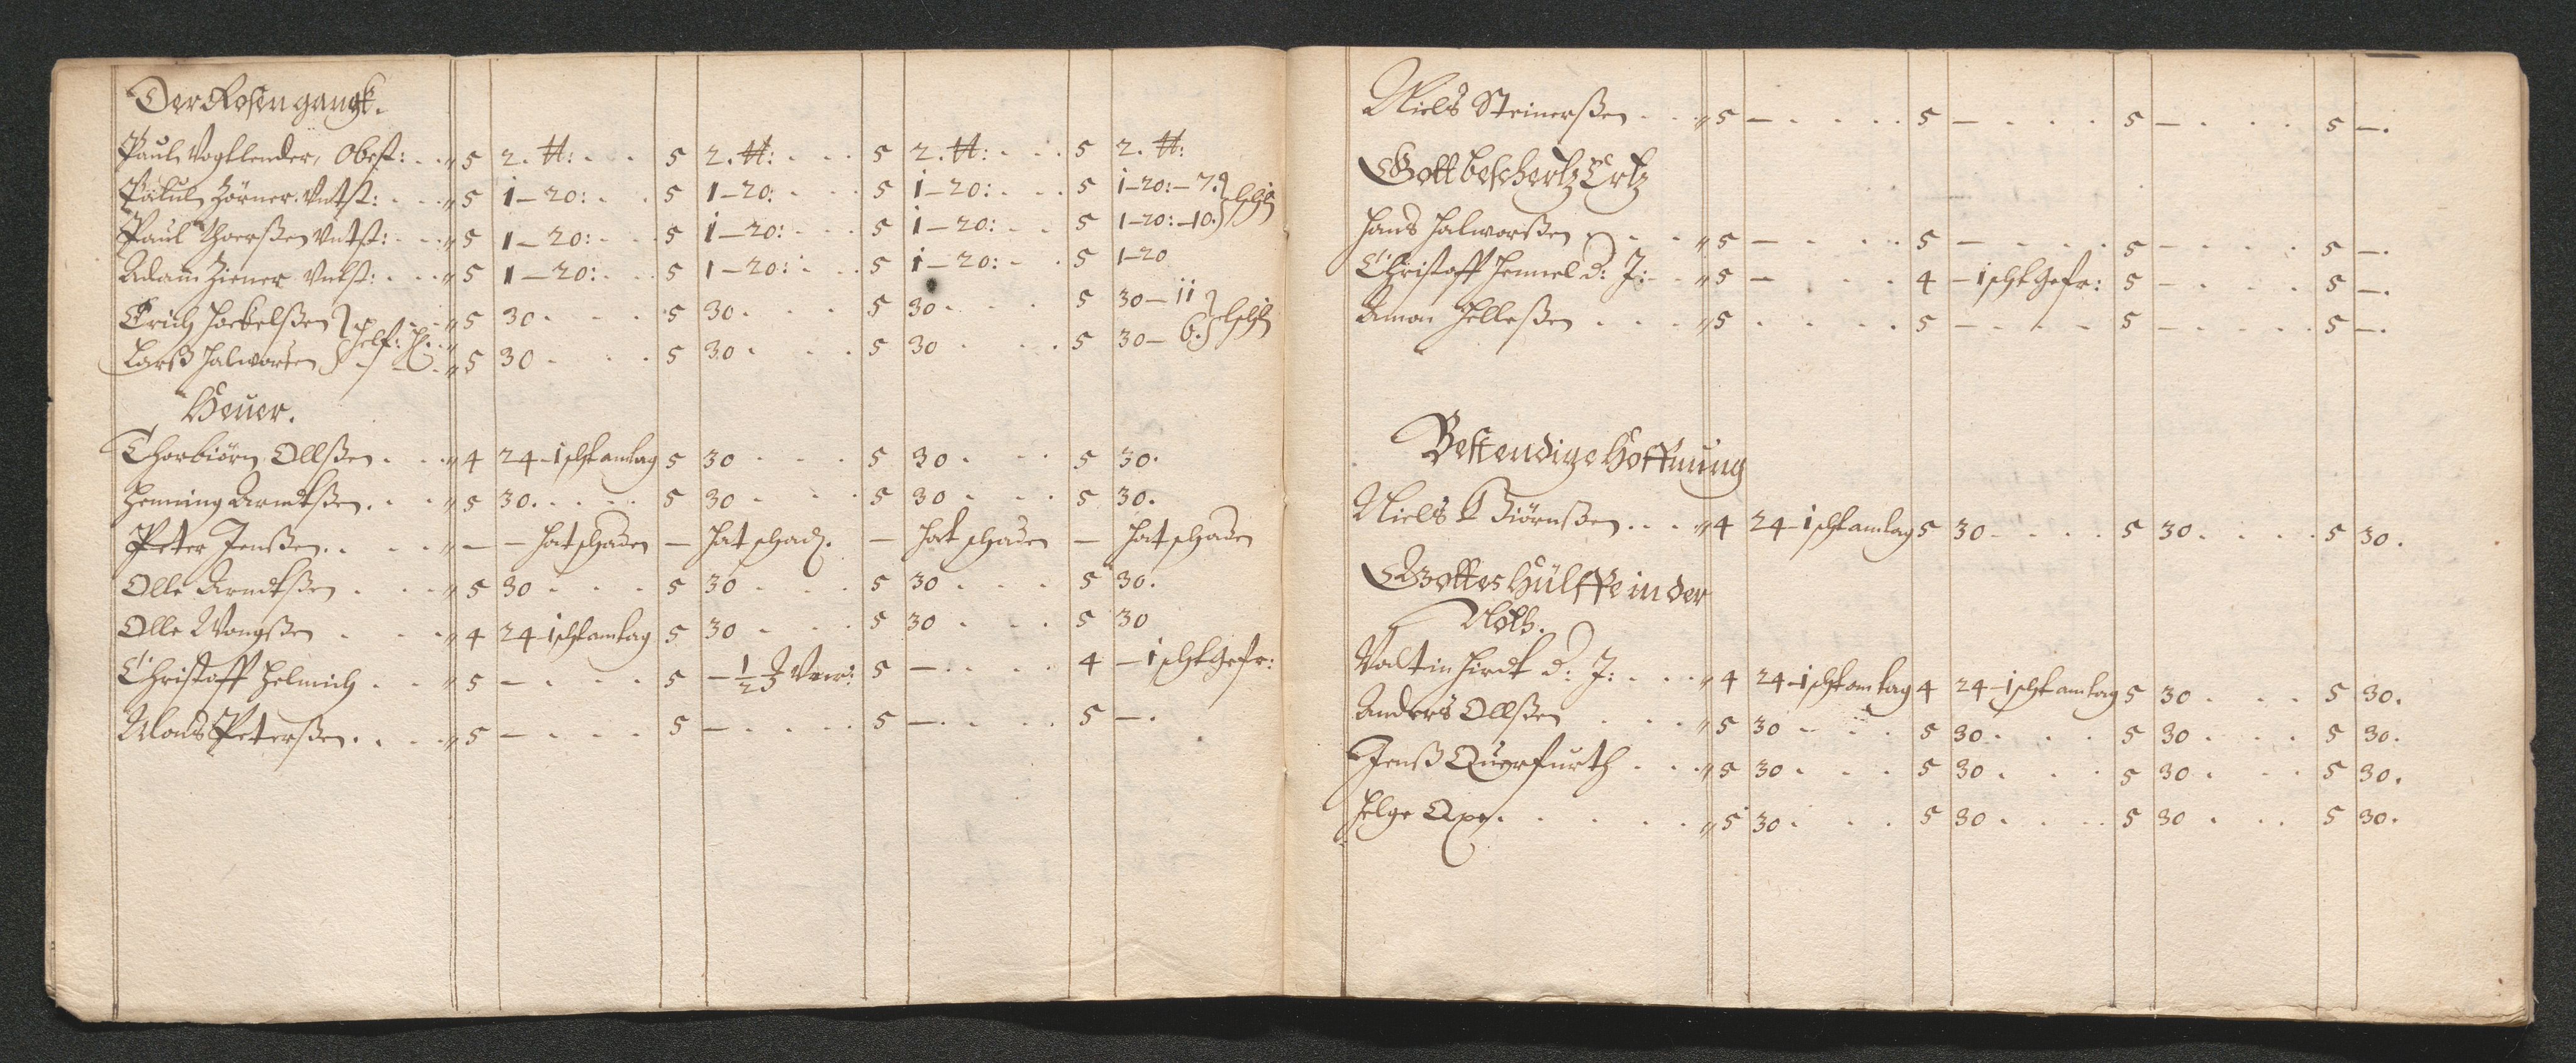 Der Rosengangk.
Paul Vogtlender, Obest: . . " 5 2. tt: . . . 5 2. tt: . . . 5 2. tt: . . . 5 2. tt:
Paul Zörner. Vntst: . . . " 5 1–20: . . 5 1–20: . . . 5 1–20: . . . 5 1–20:–7.
Paul Thorßen Vntst: . . . " 5 1–20: . . . 5 1–20: . . . 5 1–20: . . 5 1–20:–10.
Adam Ziener Vntst: . . . " 5 1–20: . . 5 1–20: . . . 5 1–20: . . 5 1–20
Erich " 5 30 . . . . 5 30 . . . 5 30 . . . 5 30–11
Larß Halworsen " 5 30 . . . 5 30 . . . 5 30 . . . 5 30–6.
Heuer.
Thorbiörn Ollßen . . . " 4 24–1 scht am tag 5 30 . . . 5 30 . . . 5 30.
Henning Arndtßen . . . " 5 30. . . . 5 30 . . . 5 30 . . . 5 30.
Peter Jenßen . . . . " – – hat schaden – hat schad. – hat schaden – hat schaden
Olle Arndtßen . . . " 5 30 . . . . 5 30 . . . 5 30 . . . 5 30.
Olle Wongßen . . . . " 4 24–1 scht am tag 5 30 . . . 5 30 . . . 5 30
Christoff Helmich . . . " 5 – . . . . 5 – 1/2 5 – . . . . 4 – 1 scht gefr:
Mons Peterßen . . . . " 5 – . . . . 5 – . . . . 5 – . . . . 5 –.
Niels Steinerßen . . . " 5 – . . . . 5 – . . . . 5 – . . . . 5 –.
Gott beschertz Ertz
Hans Halworßen . . . " 5 – . . . . 5 – . . . . 5 – . . . . 5 –.
Christoff Hemel d: J: . . " 5 – . . . 4 – 1 scht gefr: 5 – . . . . 5 –.
Amon Helleßen . . . " 5 . . . . 5 – . . . . 5 – . . . . 5 –.
Bestendige Hoffnung
Niels Biörnßen . . . " 4 24–1 scht am tag 5 30 . . . . 5 30 . . . . 5 30.
Gottes Hülffe in der
Noth.
Valtin Hirdt d: J: . . . " 4 24–1 scht am tag 4 24–1 scht am tag 5 30 . . . 5 30.
Anders Ollßen . . . " 5 30 . . . 5 30 . . . 5 30 . . . 5 30.
Jenß Querfurth . . . " 5 30 . . . 5 30 . . . 5 30 . . . 5 30.
Helge Oxe. . . . . . " 5 30 . . . 5 30 . . . 5 30 . . . 5 30.